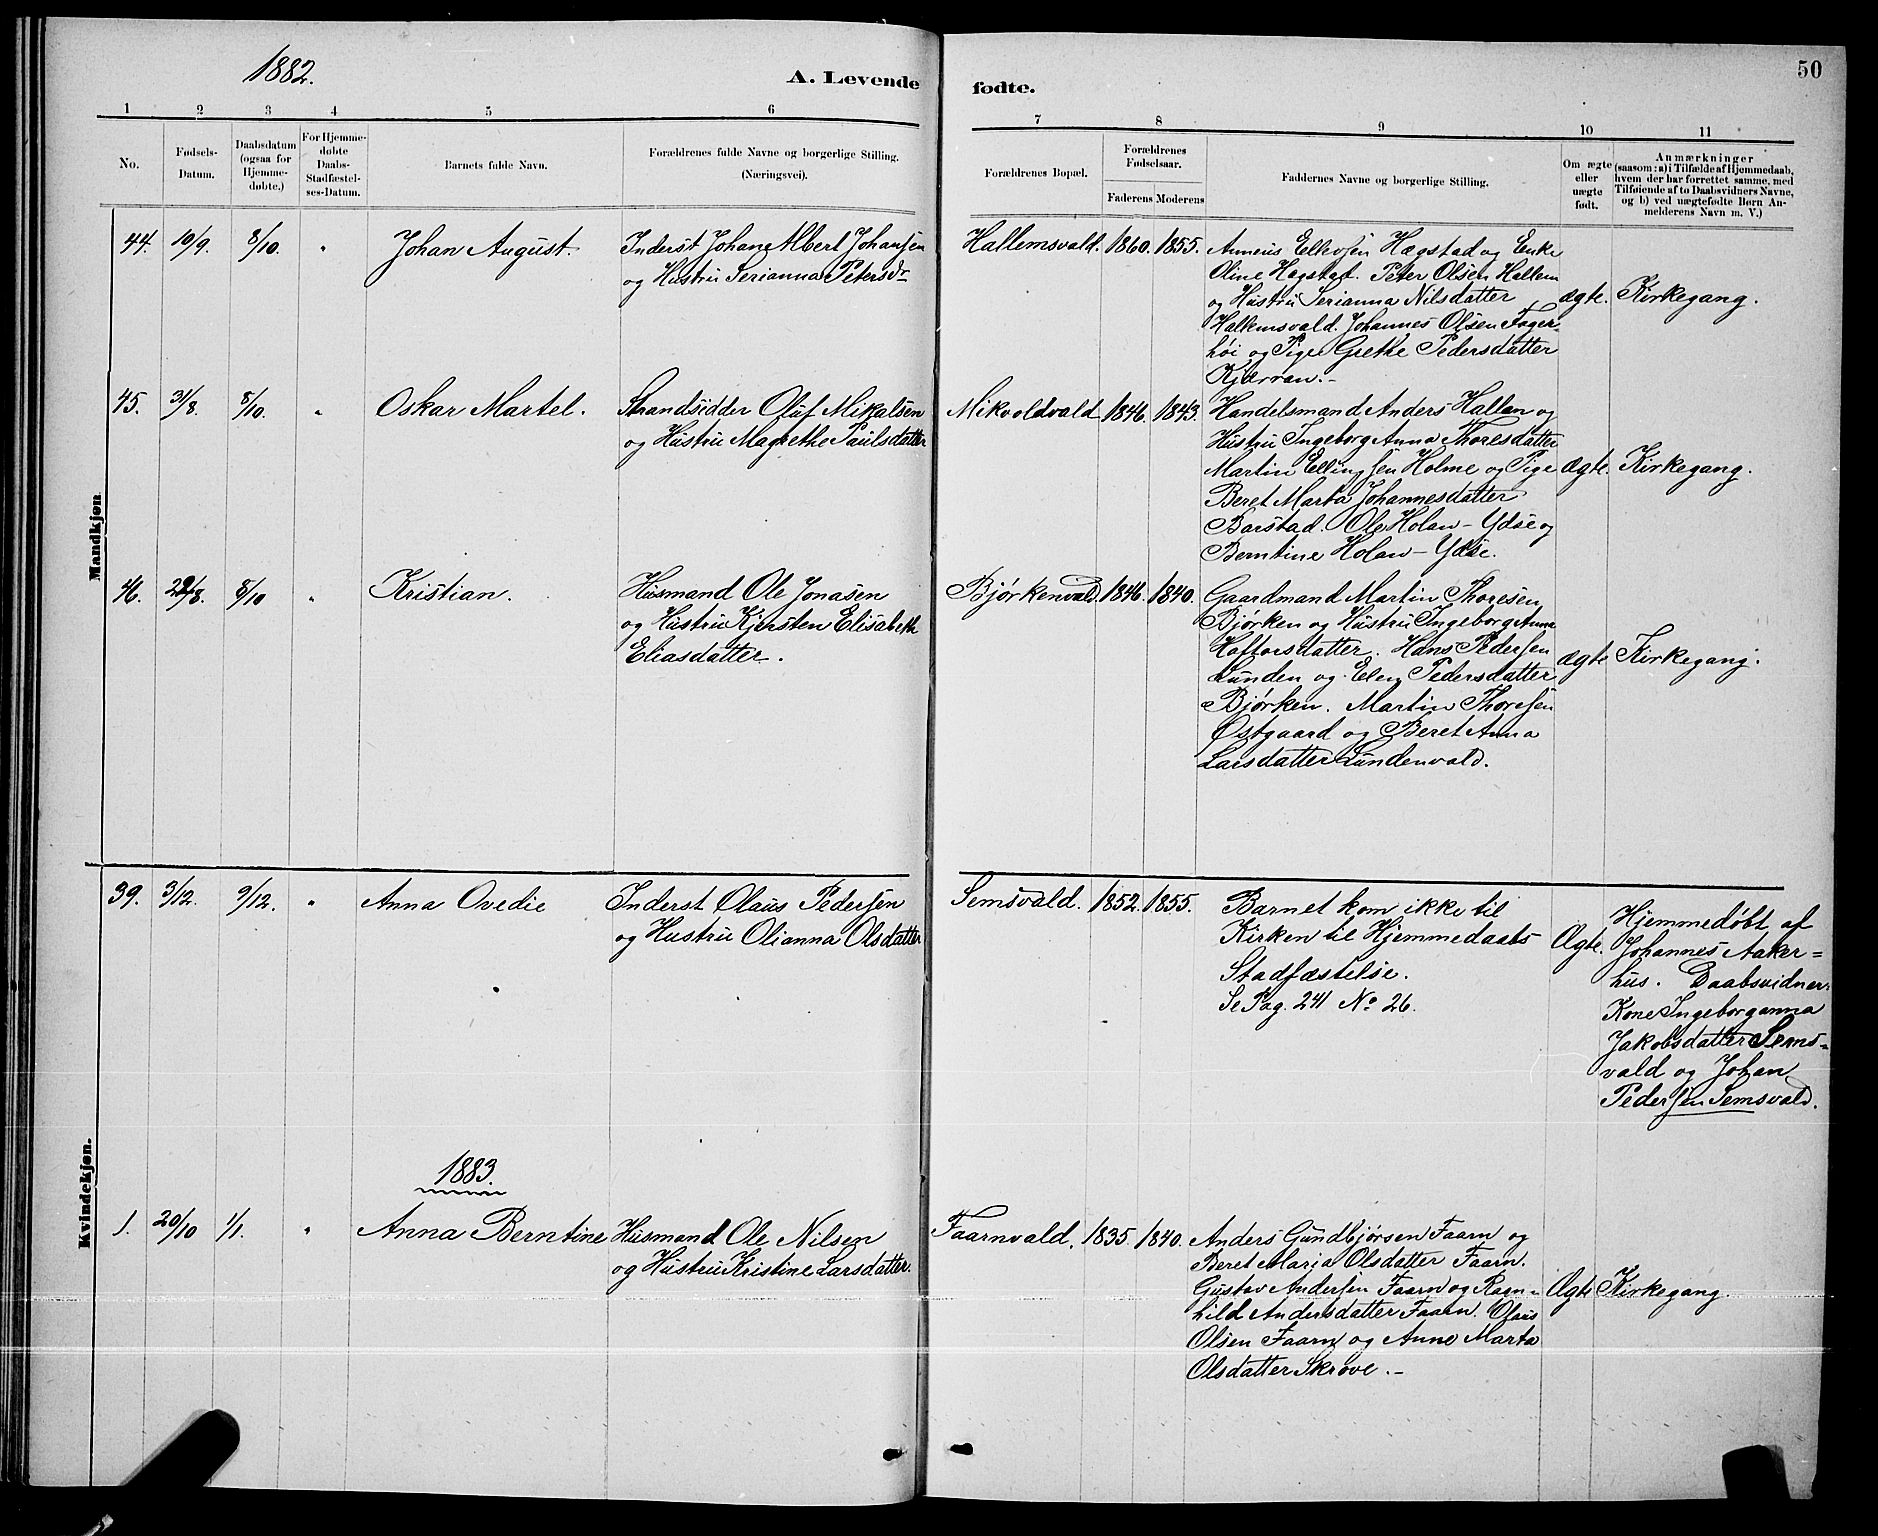 1882.
A. Levende fødte.
50
1 2 3 4 5 6 7 8 9 10 11
No.
Fødsels-
Datum.
Daabsdatum
(ogsaa for
Hjemme-
døbte.)
For Hjemme-
døbte
Daabs-
Stadfæstel-
ses-Datum.
Barnets fulde Navn.
Forældrenes fulde Navne og borgerlige Stilling.
(Næringsvei).
Forældrenes Bopæl.
Forældrenes
Fødselsaar.
Faderens Moderens
Faddernes Navne og borgerlige Stilling.
Om ægte
eller
uægte
født.
Anmærkninger
(saasom: a) i Tilfælde af Hjemmedaab,
hvem der har forrettet samme, med
Tilføiende af to Daabsvidners Navne,
og b) ved uægtefødte Børn An-
melderens Navn m. V.)
Mandkjøn.
44. 10/9. 8/10. " Johan August.
Inderst Johan Albert Johansen
og Hustru Serianna Petersdr
Hallemsvald. 1860. 1855.
Anneus Ellevsen Hegstad og Enke
Oline Hegstad. Peter Olsen Hallem
og Hustru Serianna Nilsdatter
Hallemsvald. Johannes Olsen Fager-
høi og Pige Grethe Pedersdatter
Kjærran.-
ægte. Kirkegang.
45. 31/8. 8/10. " Oskar Martel.
Strandsidder Oluf Mikalsen
og Hustru Magrethe Paulsdatter
Mikvoldvald 1846. 1843.
Handelsmand Anders Hallan og
Hustru Ingeborg Anna Thoresdatter
Martin Ellingsen Holme og Pige
Beret Marta Johannesdatter
Barstad. Ole Holan-Ydse og
Berntine Holan-Ydse.
Ægte. Kirkegang.
46. 8/10 " Kristian.
Husmand Ole Jonasen
og Hustru Kjersten Elisabeth
Eliasdatter.
Bjørkenvald. 1846. 1840.
Gaardmand Martin Thoresen
Bjørken og Hustru Ingeborg Anna
Haftorsdatter. Hans Pedersen
Lunden og Elen Pedersdatter
Bjørken. Martin Thoresen
Østgaard og Beret Anna
Larsdatter Lundenvald.
ægte Kirkegang.
Kvindekjøn.
39. 3/12. 9/12. " Anna Ovedie
Inderst Olaus Pedersen
og Hustru Olianna Olsdatter
Semsvald. 1852. 1855.
Barnet kom ikke til
Kirken til Hjemmedaabs-
Stadfæstelse.
Se Pag. 241 No 26.
Ægte.
Hjemmedøbt af
Johannes Aaker=
hus. Daabsvidner:
Kone Ingeborganna
Jakobsdatter Sems-
vald og Johan
Pedersen Semsvald.
1883.
1. 20/10 1/1. " Anna Berntine
Husmand Ole Nilsen
og Hustru Kristine Larsdatter.
Faarnvald. 1835. 1840.
Anders Gundbjørsen Faarn og
Beret Marja Olsdatter Faarn.
Gustav Andersen Faarn og Ragn-
hild Andersdatter Faarn. Olaus
Olsen Faarn og Anne Marta
Olsdatter Skrove.-
Ægte Kirkegang.